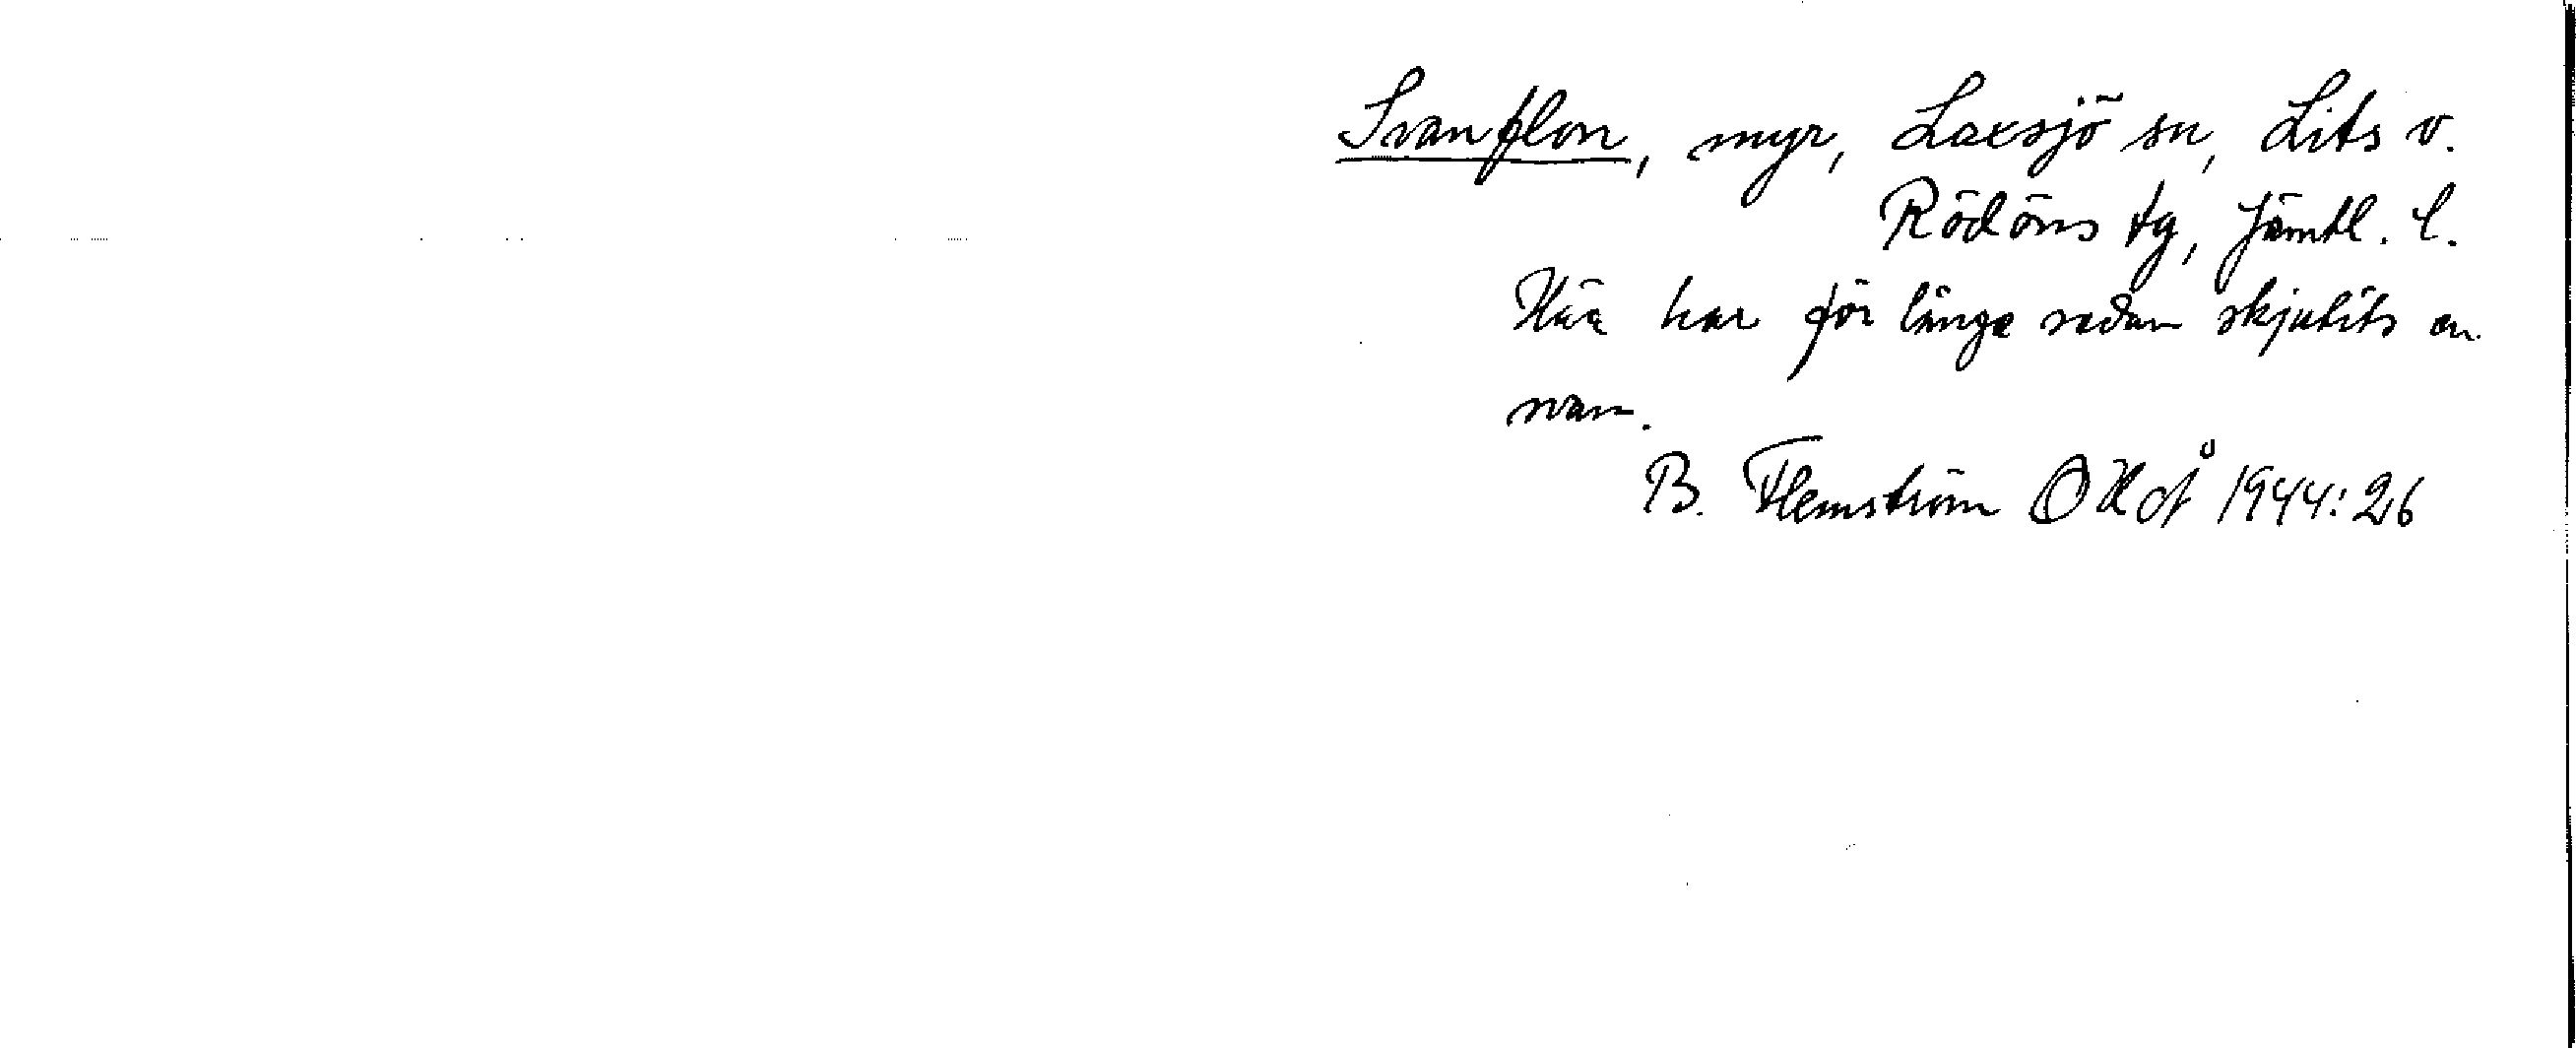 Svanflon, myr, Laxsjö sn, Lits o.
Rödöns tg, Jämtl. l.
Här har för länge sedan skjutits en
svan.
B. Flemström OUÅ 1944:26